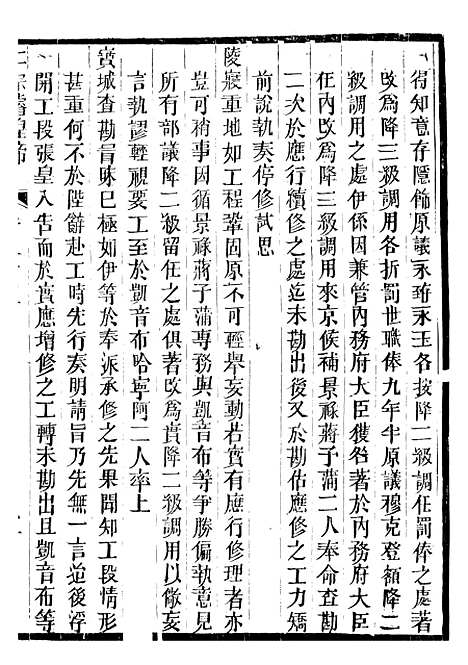 得知意存隱飾原議永臶永玉各按降二級調任罰俸之處著
改爲降三級調用各折罰世職俸九年半原議穆克登額降二
級調用之處伊係因兼管內務府大臣獲咎著於內務府大臣
任內改爲降三級調用來京候補景祿蔣予蒲二人奉命查勘
二次於應行續修之處迄未勘出後又於勘估應修工力矯
前說執奏停修試思
陵寢重地如工程鞏固原不可輕舉妄動若實有應行修理者亦
豈可稍事因循景祿蔣予蒲專務與凱音布等爭勝偏執意見
所有部議降二級留任之處俱著改爲實降二級調用以儆妄
言執謬輕視要工至於凱音布哈寧阿二人率上
實城查勘旨昧已極如伊等於奉派承修之先果聞知工段情形
甚重何不於陛辭赴工時先行奏明請旨乃先無一言迨後浮
開工段張皇入告而於實應增修之工轉未勘出且凱音布等
仁宗睿皇帝